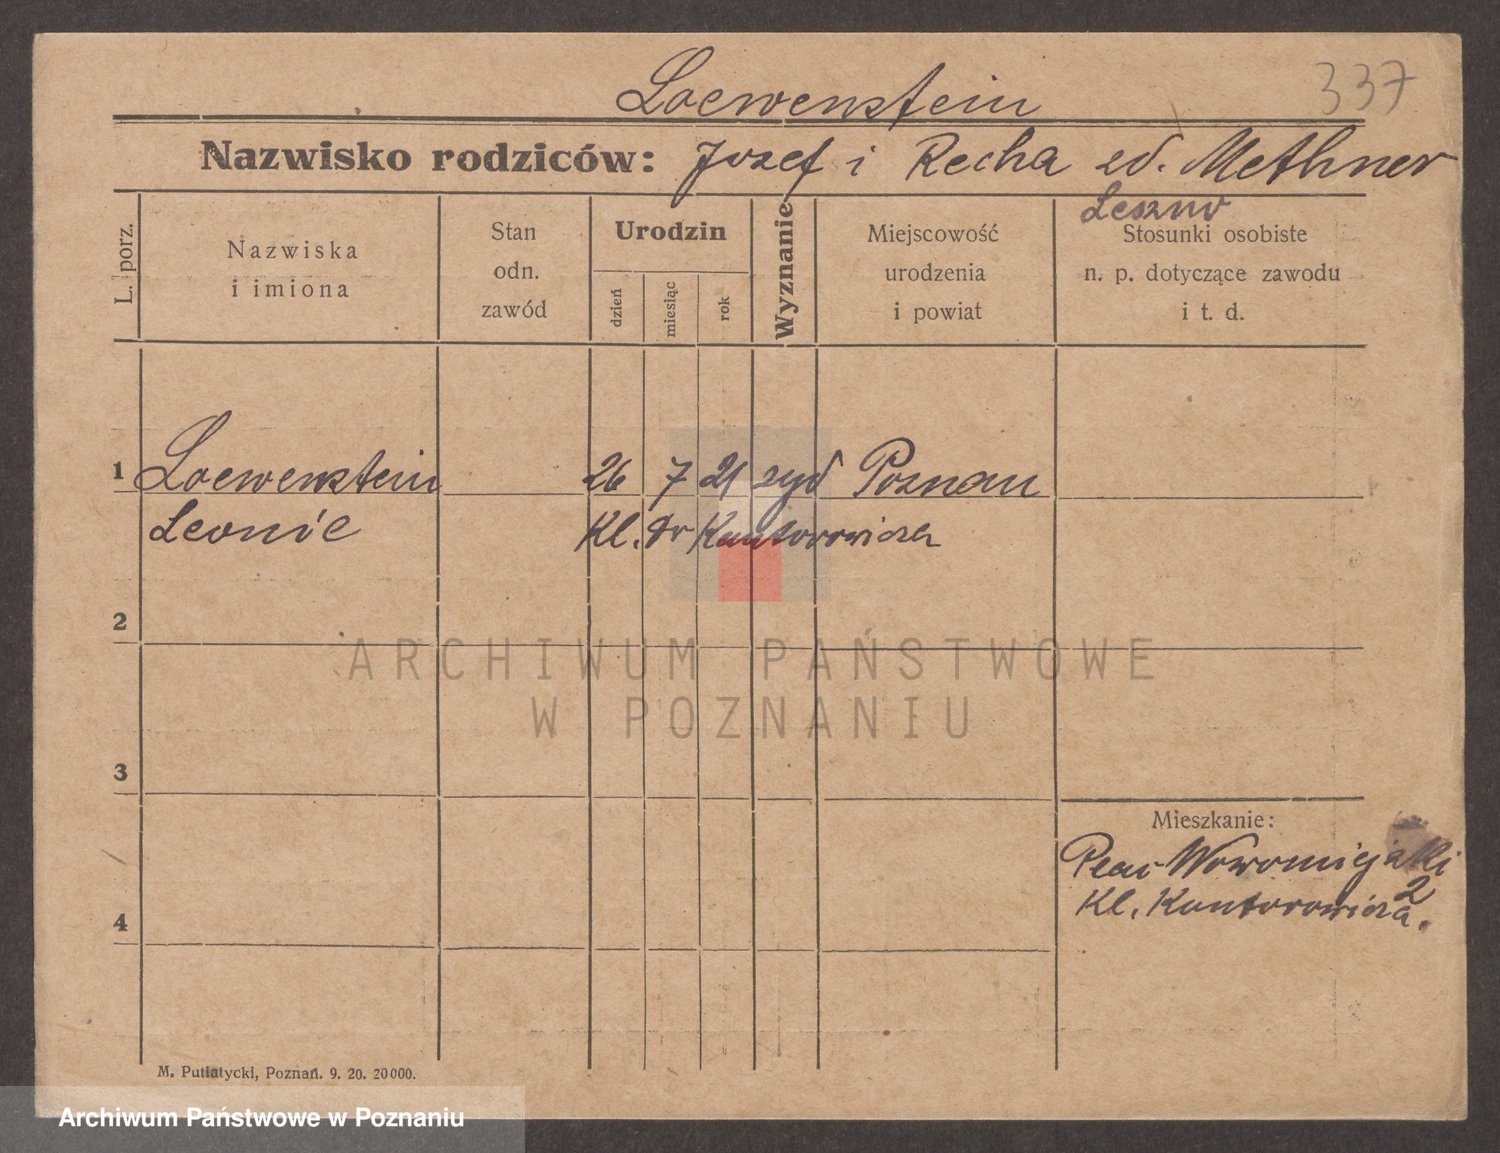 Loewenstein
337
Nazwisko rodziców: Jozef i Recha zd. Methner
Leszno
L. porz.
Nazwiska
i imiona
Stan
odn.
zawód
Urodzin
dzień
miesiąc
rok
Wyznanie
Miejscowość
urodzenia
i powiat
Stosunki osobiste
n. p. dotyczące zawodu
i t. d.
1 Loewenstein 26 7 21 żyd Poznan
Leonie Kl. Dr Kantorowicza
2
ARCHIWUM PAŃSTWOWE
W POZNANIU
3
Mieszkanie:
Plac Nowomiejski
2
Kl. Kantorowicza.
4
M. Putiatycki, Poznań. 9. 20. 20000.
Archiwum Państwowe w Poznaniu